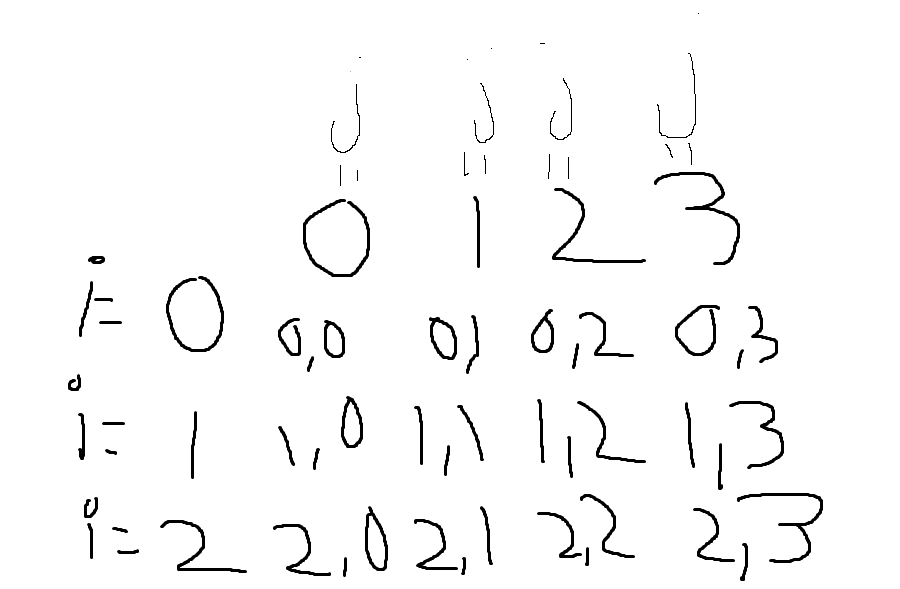 j j j j
= = = =
0 1 2 3
i= 0 0,0 0,1 0,2 0,3
i= 1 1,0 1,1 1,2 1,3
i= 2 2,0 2,1 2,2 2,3